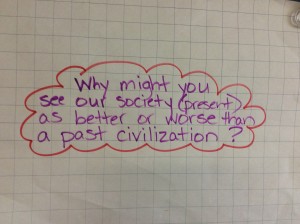 Why might you
see our society (present)
as better or worse than
a past civilization?